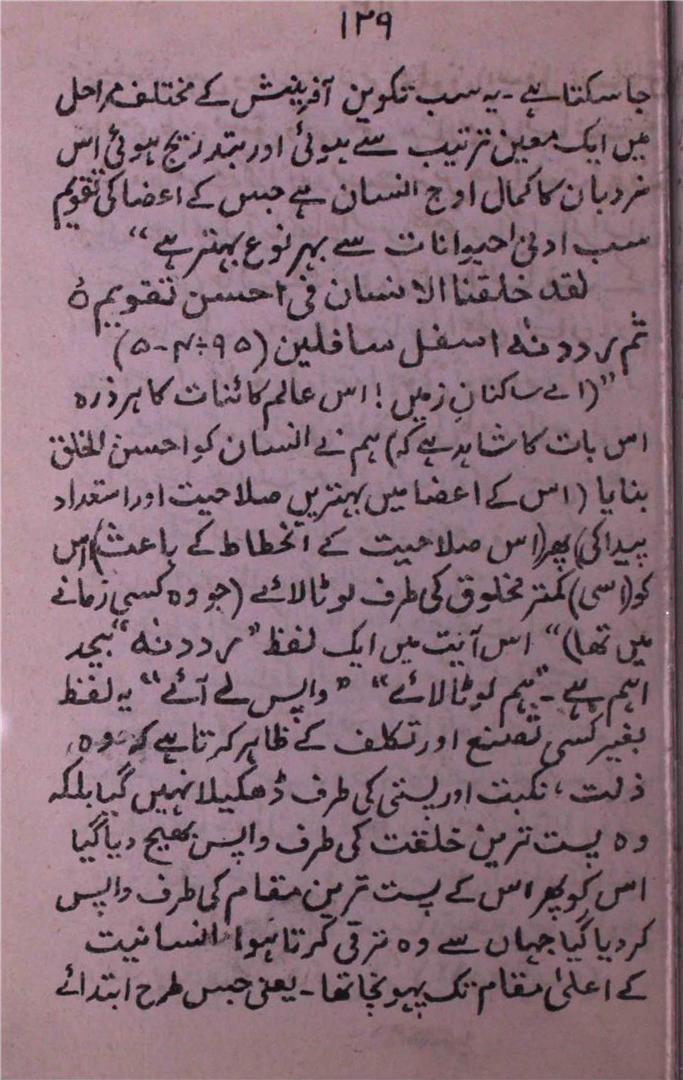 ۱۳۹
جا سکتا ہے ۔ یہ سب تکوین آفرینش کے مختلف مراحل
میں ایک معین ترتیب سے ہوئی اور بتدریج ہوئی اس
نردبان کا کمال اوج انسان ہے جس کے اعضا کی تقویم
سب ادنیٰ حیوانات سے بہر نوع بہتر ہے “
لقد خلقنا الانسان فی احسن تقویم ہ
ثم رددنٰہ اسفل سافلین (۹۵ ÷ ۴ - ۵)
” (اے ساکنانِ زمیں ! اس عالم کائنات کا ہر ذرہ
اس بات کا شاہد ہے کہ) ہم نے انسان کو احسن الخلق
بنایا (اس کے اعضا میں بہترین صلاحیت اور استعداد
پیدا کی) پھر (اس صلاحیت کے انحطاط کے باعث) اس
کو (اسی) کمتر مخلوق کی طرف لوٹا لائے (جو وہ کسی زمانے
میں تھا) “ اس آیت میں ایک لفظ ” رددنٰہ “ بیحد
اہم ہے ۔ ” ہم لوٹا لائے “ ” واپس لے آئے “ یہ لفظ
بغیر کسی تصنع اور تکلف کے ظاہر کرتا ہے کہ وہ
ذلت ، نکبت اور پستی کی طرف ڈھکیلا نہیں گیا بلکہ
وہ پست ترین خلقت کی طرف واپس بھیج دیا گیا
اس کو پھر اس کے پست ترین مقام کی طرف واپس
کر دیا گیا جہاں سے وہ ترقی کرتا ہوا انسانیت
کے اعلیٰ مقام تک پہونچا تھا ۔ یعنی جس طرح ابتدائے